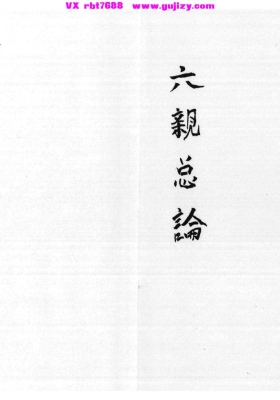 VX rbt7688 www.gujizy.com
六親总論